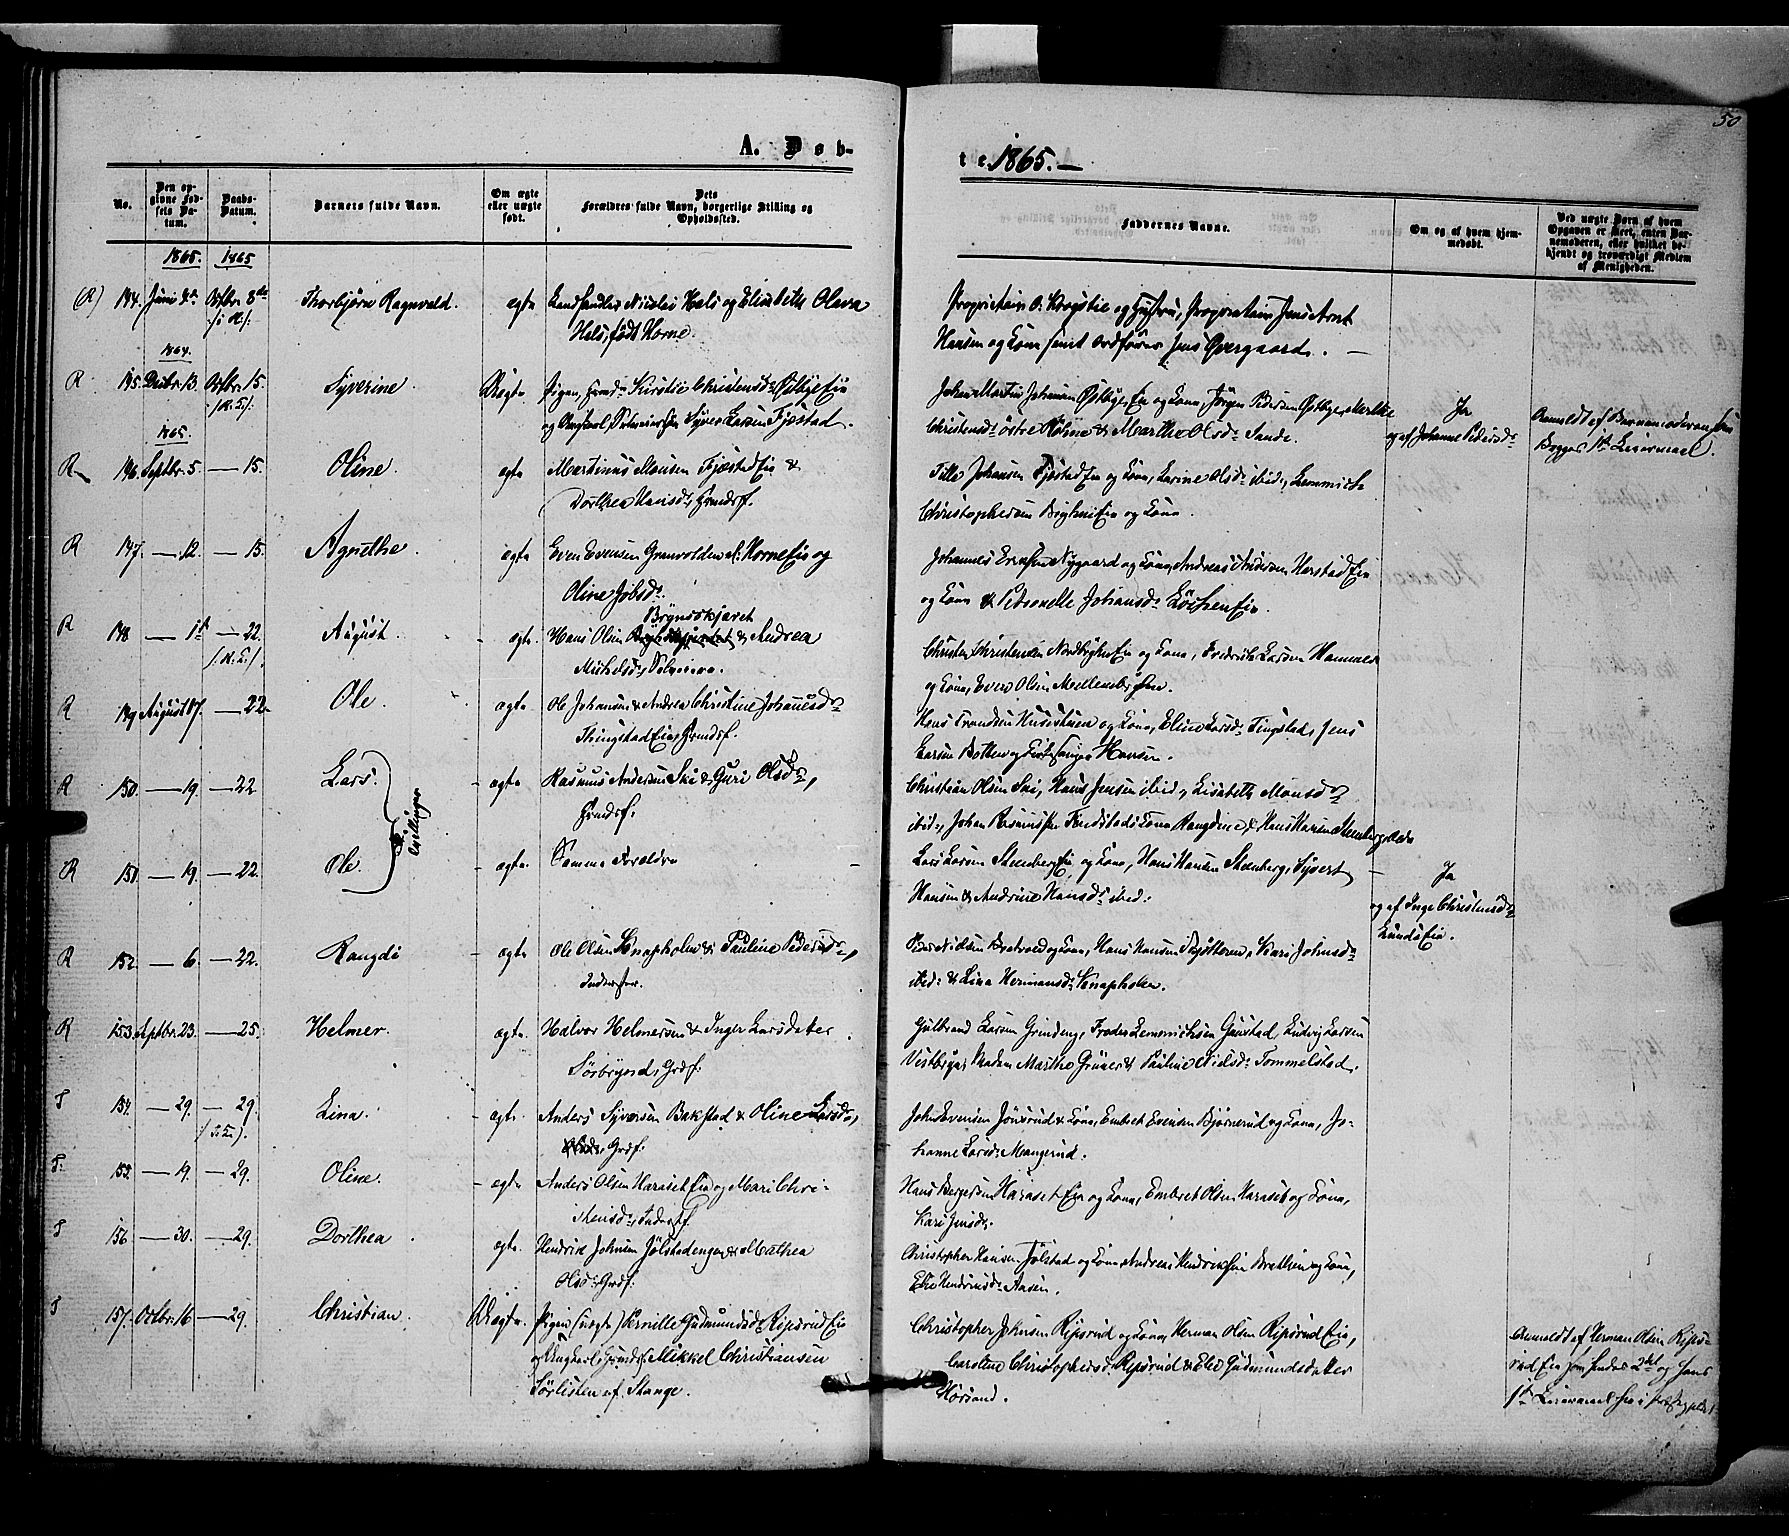 50
A. Døb-
te. 1865. —
No.
Den op-
givne Fød-
sels Da-
tum.
Daabs-
Datum.
Barnets fulde Navn.
Om ægte
eller uægte
født.
Dets
Forældres fulde Navn, borgerlige Stilling og
Opholdssted.
Faddernes Navne.
Om og af hvem hjem-
medøbt.
Ved uægte Børn af hvem
Opgaven er skeet, enten Bar-
nemoderen, eller hvilket be-
kjendt og troværdigt Medlem
af Menigheden.
1865. 1865
(R) 144. Juni Octbr. 8de Thorbjørn Ragnvald. ægte Landhandler Nicolai Hals og Elisabeth Olava
Hals, født Horne.
Proprietair O. Krogstie og Hustru, Proprietair Jens Arnt
Hansen og Kone samt Ordfører Jens Øvergaard. —
1864.
R 145. Decbr. 13. Octbr. 15. Syverine. Uægte Pigen, Grmds. Kirstie Christensdr. Østbye Eie
og Ungkarl, Syver Larsen Fjæstad.
Johan Martin Johansen Østbye Eie og Kone, Jørgen Pedersen Østbye, Marthe
Christensdr. østre Holme & Marthe Olsdr. Sande.
Ja
og af Johanne Pedersdr.
Anmeldt af Barnemoderen
Begges 1ste Leiermaal.
1865.
R 146. Septbr. 5. — 15. Oline. ægte Martinus Monsen Fjæstad Eie &
Dorthea Hansdr., Grmdsf.
Tille Johansen Fjæstad Eie og Kone, Karine Olsdr. ibid., Lemmich
Christophersen Berghus Eie og Kone.
R 147. — 12. — 15. Agnethe. ægte Even Evensen Granvolden Horne Eie og
Oline Jobsdr.
Johannes Eriksen Nygaard og Kone, Andreas Andersen Harstad Eie
og Kone & Petronelle Johansdr. Løchen Eie.
R 148 — 1ste — 22. August. - ægte. Hans Olsen Brynsskjæret & Andrea
Michelsdr.,
Christen Christensen Nordberg Eie og Kone, Frederik Larsen Hammer
og Kone, Even Olsen Mellemberg.
R 149 August 17. — 22. Ole. ægte. Ole Johansen & Andrea Christine Johannesdr.
Thingstad Eie, Grmdsf.
Hans Frandsen Huusestuen og Kone, Eline Larsdr. Tingstad, Jens
Larsen Botten og Hansen.
R 150 — 19. — 22 Lars. - ægte. Rasmus Andersen Ski & Guri Olsdr.,
Grmdsf.
Christian Olsen Ski, Hans Jensen ibid., Lisabeth Monsdr.
Tvillinger
R 151 — 19. — 22. Ole. - ægte. Samme Forældre —
Lars Larsen Stenberg Eie, og Kone, Hans Hansen Stenberg, Syvert
Hansen & Andrine Hansdr. ibid:
Ja
og af Inge Christensdr.
Lunds Eie.
R 152 — 6. — 22. Rangdi - ægte Ole Olsen Knapholen & Pauline Pedersdr.,
Inderster.
Peder Nielsen Bratvold og Kone, Hans Hansen Skjøtteren, Kari Johnsdr.
ibid: & Lina Hermansdr. Knapholen.
R 153 Septbr. 23. — 25. Helmer. ægte. Halvor Helmersen & Inger Larsdatter
Sørbryns, Grdf.
Gulbrand Larsen Grindeng, Frode Lemmichsen Gaustad, Ludvig Larsen
Vestberg, Madam Marthe Grüner & Pauline Nielsdr. Tommelstad.
T 154. — 29. — 29. Lina. - ægte. Anders Syversen Bakstad & Oline Larsdr.,
Grdf.
John Evensen Jønsrud & Kone, Embret Evensen Bjørnerud og Kone, Jo-
hanne Larsdr. Mangerud.
T. 155. — 19. — 29. Oline. - ægte. Anders Olsen Haraset Eie og Mari Chri-
stensdr., Inderstf.
Hans Bergersen Haraset Eie og Kone, Embret Olsen Haraset og Kone,
Kari Jensdr.
T 156 — 30. — 29. Dorthea. ægte. Hendrik Johnsen Jølstadengen & Mathea
Olsdr. Grdf.
Christopher Hansen Jølstad og Kone, Andreas Hendriksen Bratlien og Kone,
Else Hendriksdr. Aasen.
T 157. Octbr. 16 — 29. Christian. Uægte. Pigen (uægte) Pernille Gudmundsdr. Ripsrud Eie
og Ungkarl, Grmdsf. Mikkel Christiansen
Sørlisten af Stange.
Christopher Johnsen Ripsrud og Kone, Herman Olsen Ripsrud Eie,
Caroline Christophersdr. Ripsrud & Else Gudmundsdatter
Horsand.
Anmeldt af Herman Olsen Rips-
rud Eie som hendes 2det og hans
1ste Leiermaal